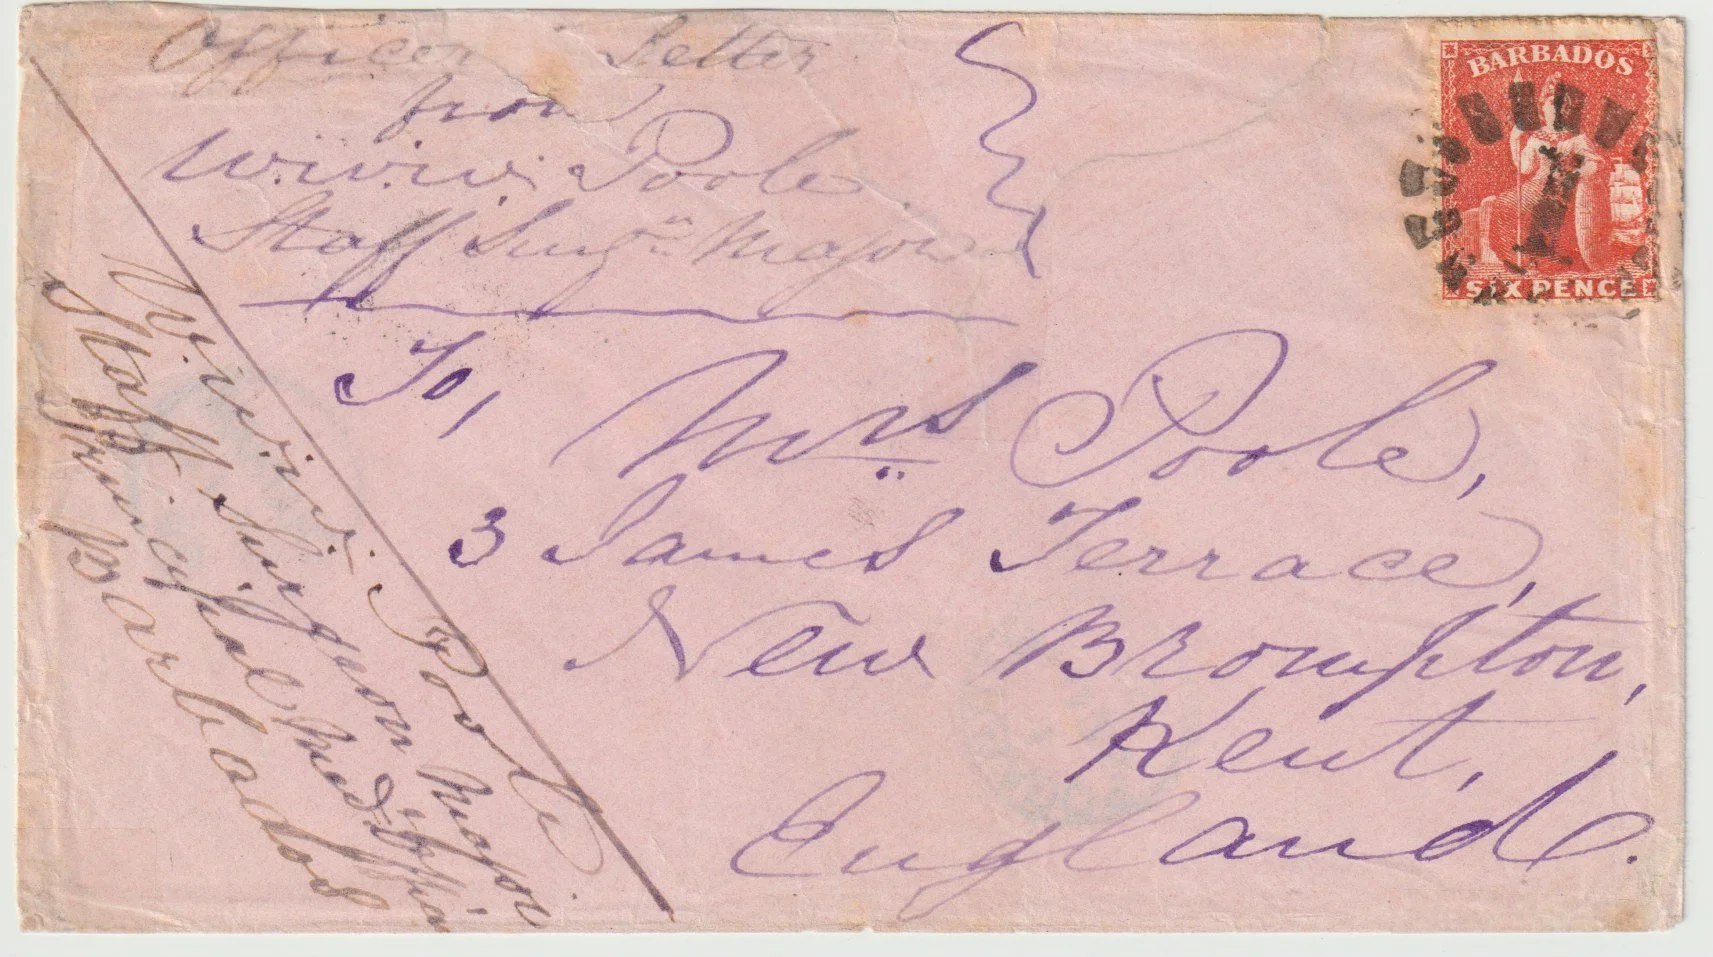 Officer Letter
from
W. W. W. Poole
Staff Surgn Major
To,
Mrs Poole,
3 James Terrace,
New Brompton,
Kent,
England.
W. W. Poole
Staff Surgeon Major
Principal Med: Offi
Barbados
BARBADOS
1
SIX PENCE